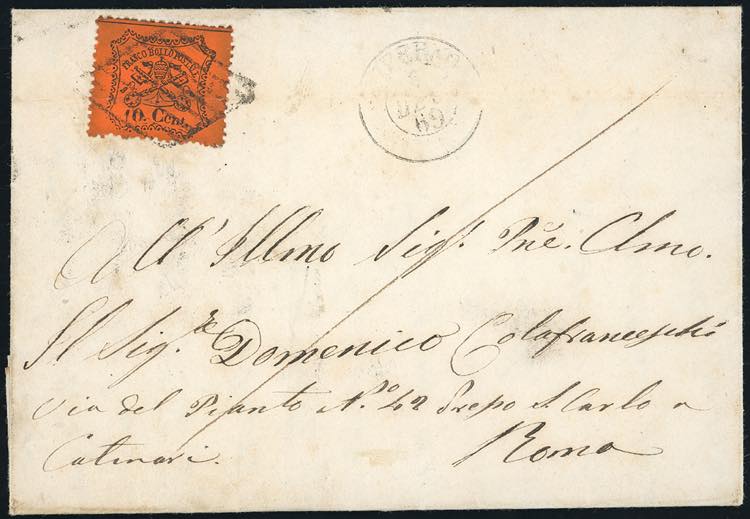 FRANCO BOLLO POSTALE
10. Cent.
DIC
69
All' Illmo Sig.r Pne. Clmo.
Il Sig.re Domenico Colafranceschi
Via del Pianto N.o 42 Presso S. Carlo a
Catinari.
Roma